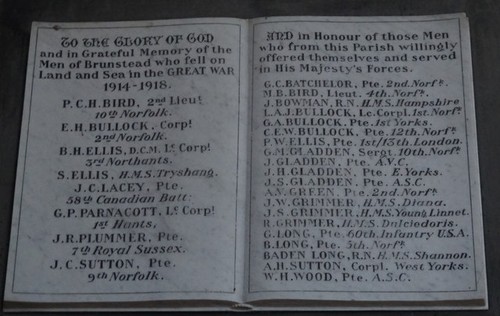 TO THE GLORY OF GOD
and in Grateful Memory of the
Men of Brunstead who fell on
Land and Sea in the GREAT WAR
1914-1918.
P.C.H. BIRD, 2nd Lieut
10th Norfolk.
E.H. BULLOCK, Corpl
2nd Norfolk.
B.H. ELLIS, D.C.M. Lc Corpl
3rd Northants.
S. ELLIS, H.M.S. Tryshang.
J.C. LACEY, Pte.
58th Canadian Batt:
G.P. PARNACOTT, Lc Corpl
1st Hunts.
J.R. PLUMMER, Pte.
7th Royal Sussex.
J.C. SUTTON, Pte.
9th Norfolk.
AND in Honour of those Men
who from this Parish willingly
offered themselves and served
in His Majesty's Forces.
G.C. BATCHELOR, Pte. 2nd Norfk.
M.B. BIRD, Lieut. 4th Norfk.
J. BOWMAN, R.N. H.M.S. Hampshire
L.A.J. BULLOCK, Lc. Corpl. 1st Norfk
G.A. BULLOCK, Pte. 1st Yorks.
C.E.W. BULLOCK, Pte. 12th Norfk
P.W. ELLIS, Pte. 1st/13th London.
G.M. GLADDEN, Sergt. 10th Norfk
J. GLADDEN, Pte. A.V.C.
J.H. GLADDEN, Pte. E. Yorks.
J.S. GLADDEN, Pte. A.S.C.
A.N. GREEN, Pte. 2nd Norfk.
J.W. GRIMMER, H.M.S. Diana.
J.S. GRIMMER, H.M.S. Young Linnet.
R. GRIMMER, H.M.S. Dulciedoris.
G. LONG, Pte. 60th Infantry U.S.A.
B. LONG, Pte. 5th Norfk
BADEN LONG, R.N. H.M.S. Shannon.
A.H. SUTTON, Corpl. West Yorks.
W.H. WOOD, Pte. A.S.C.